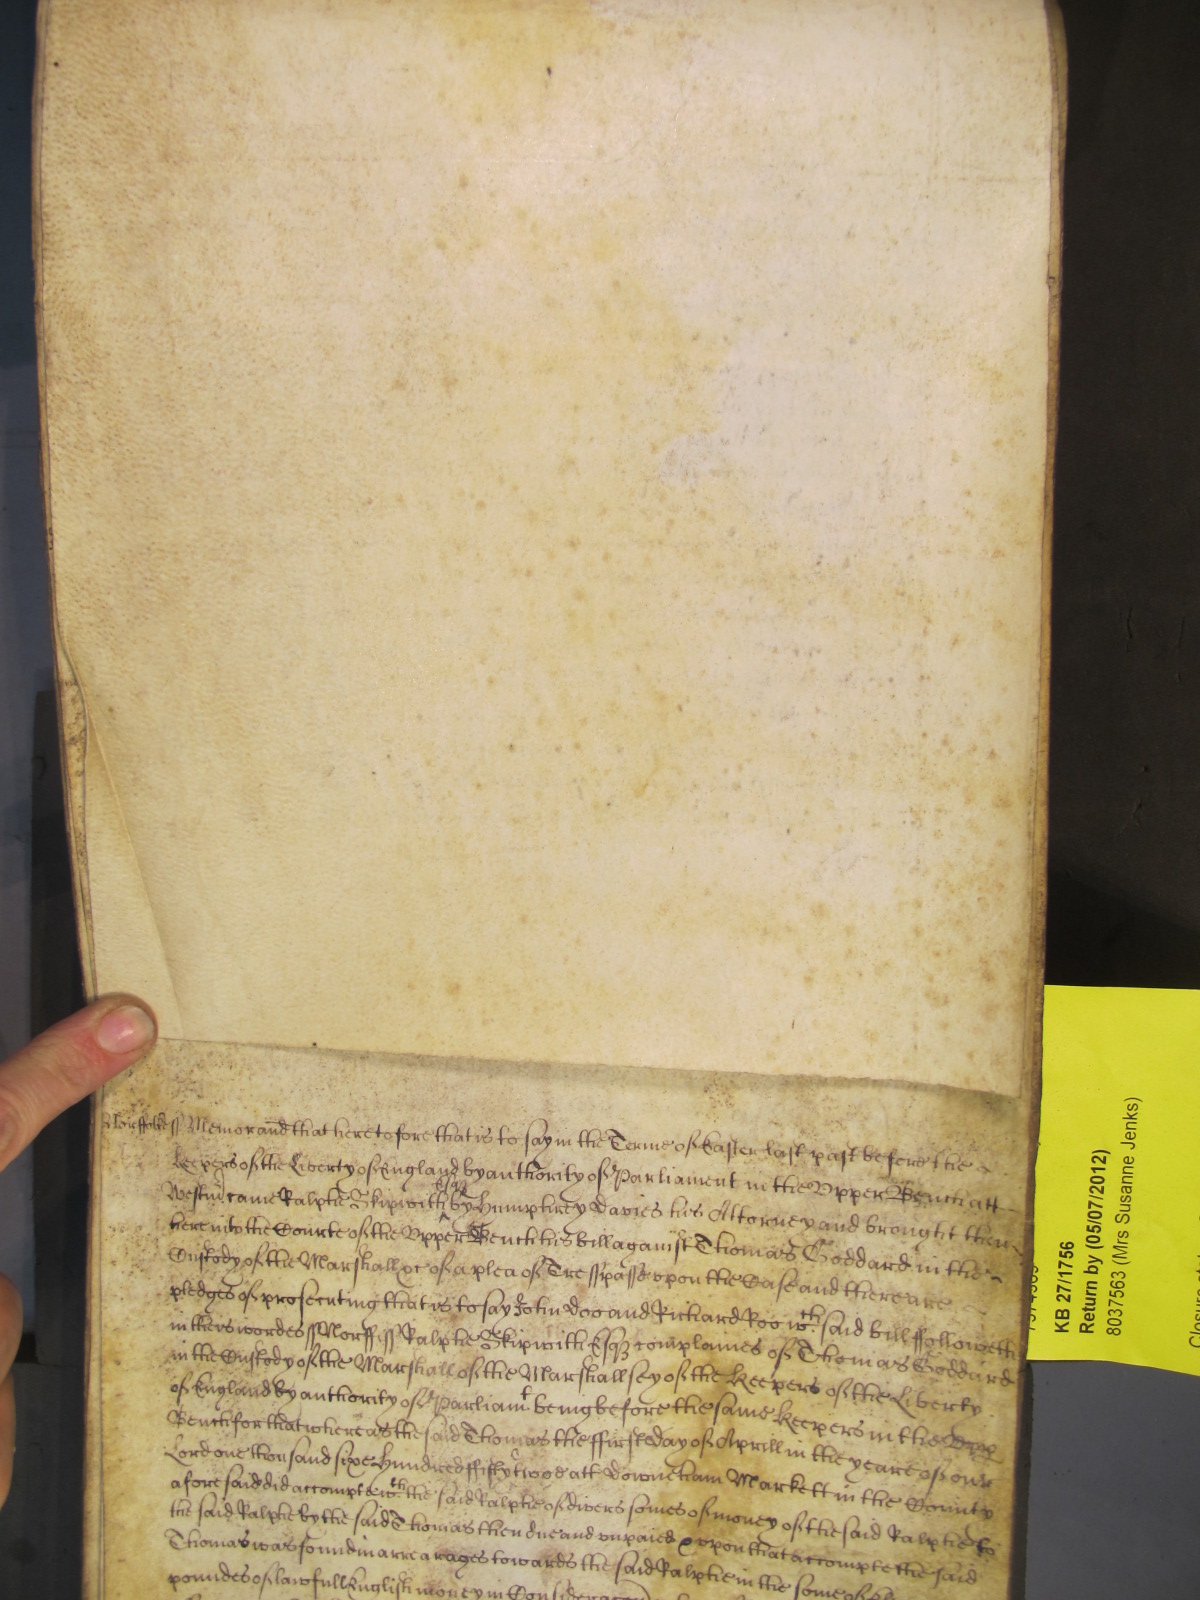 Norffolke ss Memorand that heretofore that is to say in the Terme of Easter last past before the
Keepers of the Liberty of England by authority of Parliament in the Upper Bench att
Westm came Ralphe Skipwith Esq by Humphrey Davies his Attorney and brought then
here into the Courte of the Upper Bench his bill against Thomas Goddard in the
Custody of the Marshall &c of a plea of Tresspasse upon the Case and there are
pledges of prosecuting that is to say John Doo and Richard Roo wch said bill followeth
in theis wordes ss Norff ss Ralphe Skipwith Esq complaines of Thomas Goddard
in the Custody of the Marshall of the Marshallsey of the Keepers of the Liberty
of England by authority of Parliamt being before the same Keepers in the Upp
Bench for that whereas the said Thomas the ffirst day of Aprill in the yeare of our
Lord one thousand sixe hundred fifty twoe att Downeham Markett in the County
aforesaid did accompte wth the said Ralphe of divers somes of money of the said Ralphe to
the said Ralphe by the said Thomas then due and unpaied & upon that accompte the said
Thomas was found in arrearages towards the said Ralphe in the some of
poundes of lawfull English money in Consideracon
KB 27/1756
Return by (05/07/2012)
8037563 (Mrs Susanne Jenks)